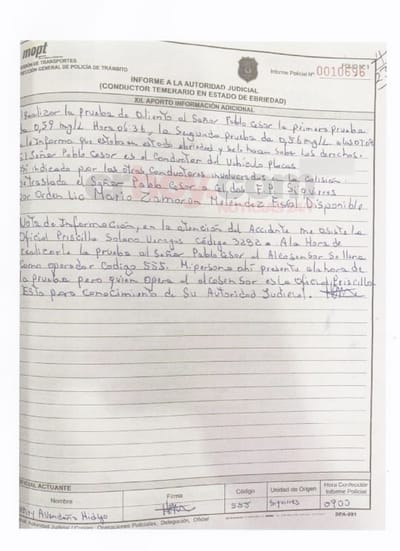 mopt
DIVISIÓN DE TRANSPORTES
DIRECCIÓN GENERAL DE POLICÍA DE TRÁNSITO
FOLIO Nº 1
Informe Policial Nº 0010696
INFORME A LA AUTORIDAD JUDICIAL
(CONDUCTOR TEMERARIO EN ESTADO DE EBRIEDAD)
XII. APORTO INFORMACIÓN ADICIONAL
Realizar la prueba de Aliento al Señor Pablo Cesar la primera prueba
da 0,59 mg/L Hora 0636, la Segunda prueba da 0,56 mg/L
le Informo que estaba en estado ebriedad y se le hacen saber sus derechos.
El Señor Pablo Cesar es el Conductor del Vehiculo placas
indicado por los otros Conductores involucrados a la colisión
traslada el Señor Pablo Cesar a Celdas F.P. Siquirres
Por Orden Lic Mario Zamoran Melendez Fiscal Disponible
NOTICIAS 247
Nota de Información, en la atención del Accidente me asiste la
Oficial Priscilla Solano Vargas Código 3282. A la Hora de
realizarle la prueba al Señor Pablo Cesar el Alcosensor Se llena
Como operador Codigo 555. Mi persona ahi presente a la hora de
la prueba pero quien opera el alcosensor es la Oficial Priscilla
Esto para conocimiento de Su Autoridad Judicial.
OFICIAL ACTUANTE
Nombre
Firma
Código
Unidad de Origen
Hora Confección Informe Policial
Hidalgo
555
Siquirres
0900
Autoridad Judicial / Copias: Operaciones Policiales, Delegación, Oficial
DPA-091